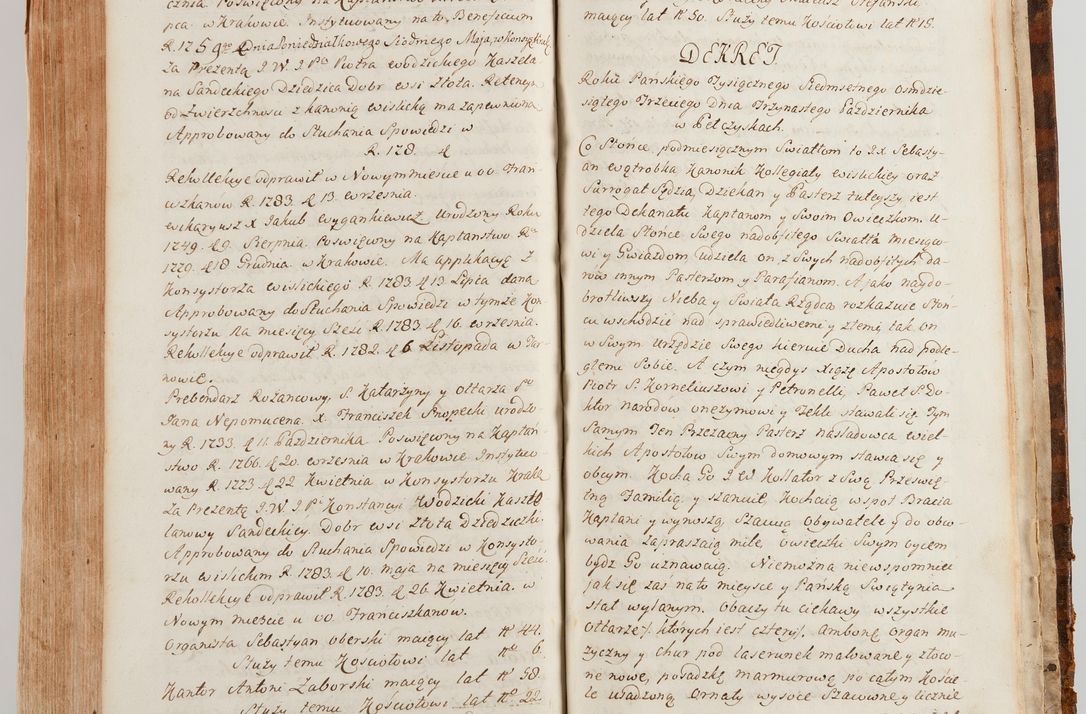 pca. w Krakowie. Instytuowany na to Beneficium
R. 1759 Dnia Poniedziałkowego Siodmego Maja, w Konsy
Za Prezentą J. W. J Pa Piotra Wodzickiego Kasztela
na Sandeckiego Dziedzica Dobr wsi Złota. Retencya
od Zwierzchnosci z kanonią wislicką ma zapewniona
Approbowany do Słuchania Spowiedzi w
R. 178. d
Rekollekcye odprawił w Nowym miescie u OO. Fran
ciszkanow R. 1783 d 13 wrzesnia.
wikaryusz X Jakub wygankiewicz Urodzony Roku
1749. d 9. Sierpnia. Poswięcony na Kapłanstwo Ru
1779. d 18 Grudnia. w Krakowie. Ma applikacyę z
Konsystorza wislickiego R. 1783 d 13 Lipca dana
Approbowany do Słuchania Spowiedzi w tymże Kon
systorzu na miesięcy Szesc R. 1783. d 16. wrzesnia.
Rekollekcye odprawił R. 1782. d 6 Listopada w Tar
nowie.
Prebendarz Rożancowy, S. Katarzyny y ołtarza So
Jana Nepomucena. X. Franciszek Snopecki urodzo
ny R. 1733. d 11. Pazdziernika Poswięcony na Kapłań
stwo R. 1766. d 20. wrzesnia w Krakowie Instytuo
wany R. 1773 d 22 Kwietnia w Konsystorzu Krako
Za Prezentę J. W. J Pi Konstancyi Wodzicki Kaszte
lanowy Sandeckiey. Dobr wsi złota Dziedziczki.
Approbowany do Słuchania Spowiedzi w Konsysto
rzu wislickim R. 1783. d 10. maja na miesięcy Szesc
Rekollekcye odprawił R. 1783. d 26 Kwietnia. w
Nowym miescie u OO Franciszkanow.
Organista Sebastyan oberski maiący lat No 44.
Służy temu Kosciołowi lat No 6.
Kantor Antoni Zaborski maiący lat No 58.
Służy temu Kosciołowi lat No 22.
maiący lat No 50. Służy temu Kosciołowi lat No 15.
DEKRET
Roku Pańskiego Tysiącznego Siedmsetnego Osmdzie
siątego Trzeciego Dnia Trzynastego Pazdziernika
w Pełczyskach.
Co Słońce podmiesięcznym Swiatłom to JX Sebasty
an wątrobka Kanonik Kollegiaty wislickiey oraz
Surrogat Sędzia, Dziekan y Pasterz tuteyszy iest
tego Dekanatu Kapłanom y Swoim Owieczkom. U-
dziela Słońce Swego nadobfitego Swiatła miesiąco
wi y Gwiazdom udziela on z Swych nadobfitych da
rów innym Pasterzom y Parafianom. A jako naydo
brotliwszy Nieba y Swiata Rządca rozkazuie Słoń
cu wschodzić nad sprawiedliwemi y złemi tak on
w Swym Urzędzie Swego kieruie Ducha nad podle
głemi Sobie. A czym niegdys Xiążę Apostołów
Piotr S. Korneliuszowi y Petronelli, Paweł S. Do-
ktor narodów onezymowi y Tekli stawali się Tym
Samym Ten Przezacny Pasterz nasladowca wiel-
kich Apostołów Swym domowym stawia się y
obcym. Kocha Go J W Kollator z Swą Przeswię
tną Familią y szanuie, Kochaią wspoł Bracia
Kapłani y wynoszą, Szacuią Obywatele y do obco
wania zapraszaią mile, owieczki Swym oycem
bydz Go uznawaią. Niemożna niewspomniec
jak się zas na to mieysce y Pańską Swiątynia
stał wylanym. Obaczy tu ciekawy wszystkie
Ołtarze /. których iest cztery /. Ambonę Organ mu
zyczny y chur pod laserunek malowane y złoco
ne nowe, posadzkę marmurową po całym Koscie-
le usadzoną Ornaty wysoce Szacowne y licznie